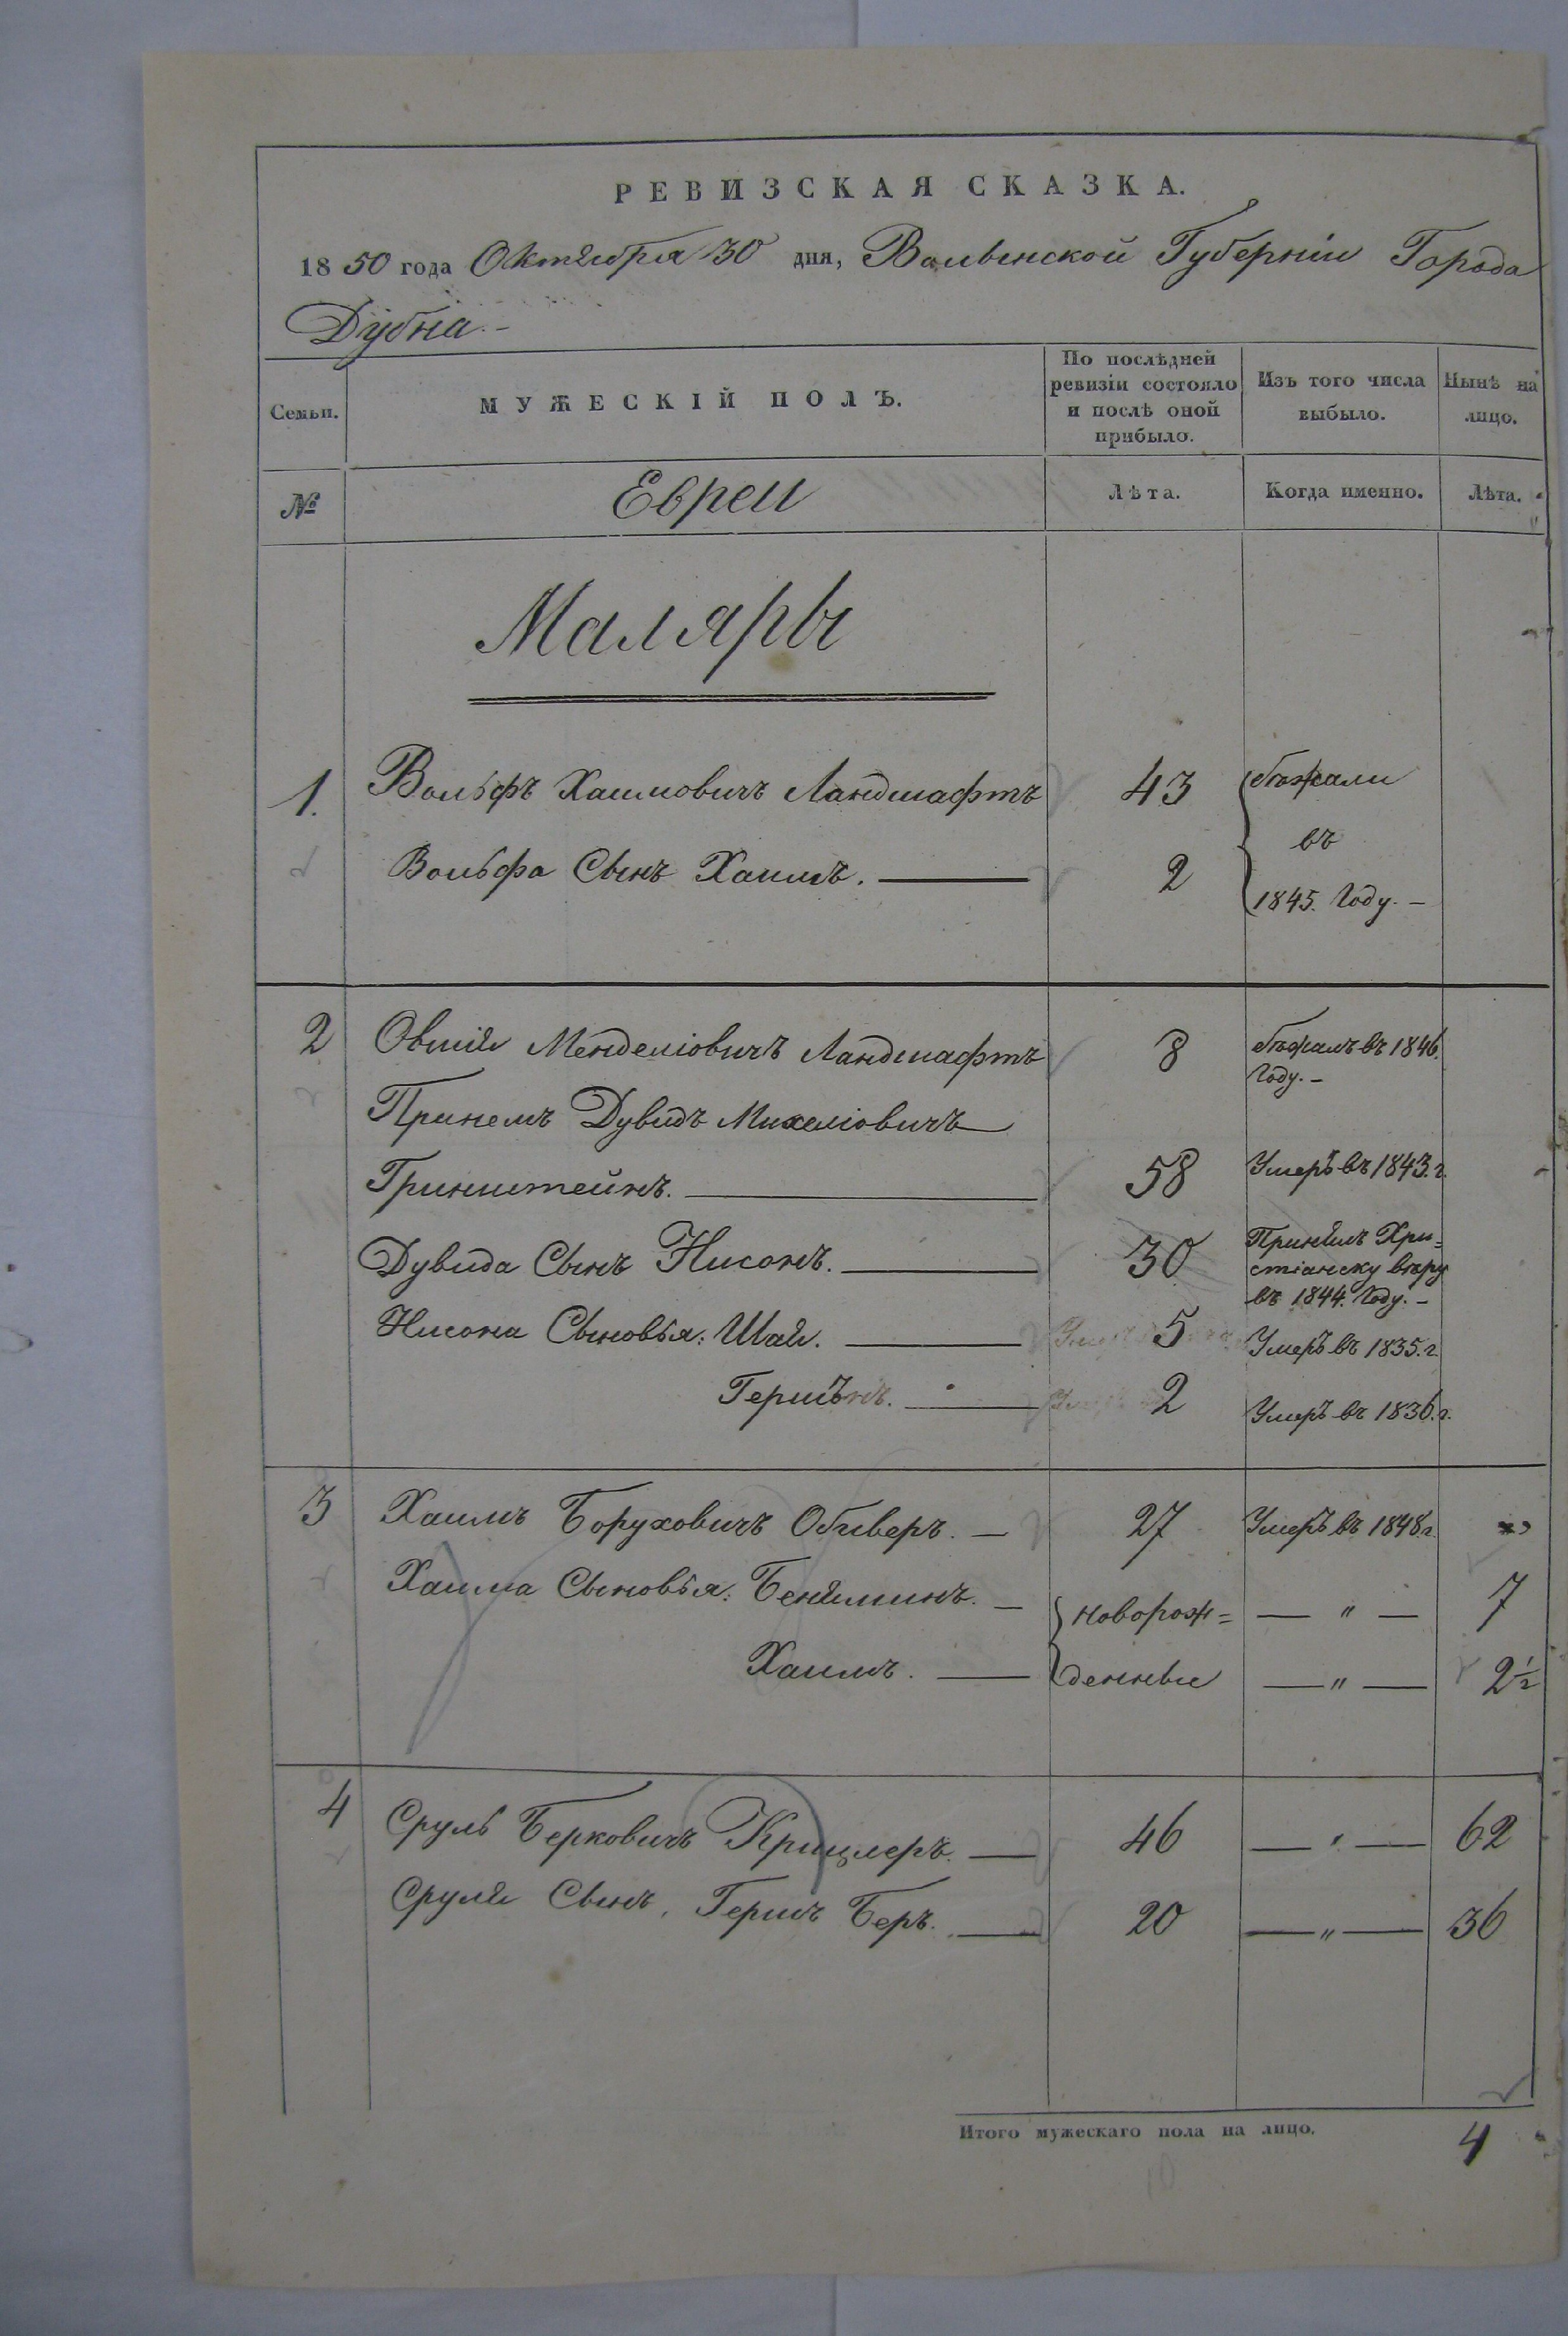 РЕВИЗСКАЯ СКАЗКА.
1850 года Октября 30 дня, Волынской Губерніи Города
Дубна.-
Семьи.
МУЖЕСКІЙ ПОЛЪ.
По послѣдней
ревизіи состояло
и послѣ оной
прибыло.
Изъ того числа
выбыло.
Нынѣ на
лицо.
№
Евреи
Лѣта.
Когда именно.
Лѣта.
Маляры
1. Вольфъ Хаимовичъ Ландшафтъ 43 бѣжали
въ
Вольфа Сынъ Хаимъ. — 2
1845. Году. —
2 Овшія Менделіовичъ Ландшафтъ 8 бѣжалъ въ 1846.
Году. —
Принемъ Дувидъ Михеліовичъ
Гринштейнъ. — 58 Умеръ въ 1843. г.
Дувида Сынъ Нисонъ. — 30 Принялъ Хри=
стіанску вѣру
въ 1844. Году. —
Нисона Сыновья: Шая. — 5 Умеръ въ 1835. г.
Гершъ. — 2 Умеръ въ 1836. г.
3 Хаимъ Боруховичъ Обиверъ. — 27 Умеръ въ 1848 г. "
Хаима Сыновья: Беняминъ. — новорож= — " — 7
Хаимъ. — денные — " — 2½
4 Сруль Берковичъ Крицлеръ. — 46 — " — 62
Сруля Сынъ, Гершъ Беръ. — 20 — " — 36
Итого мужескаго пола на лицо. 4